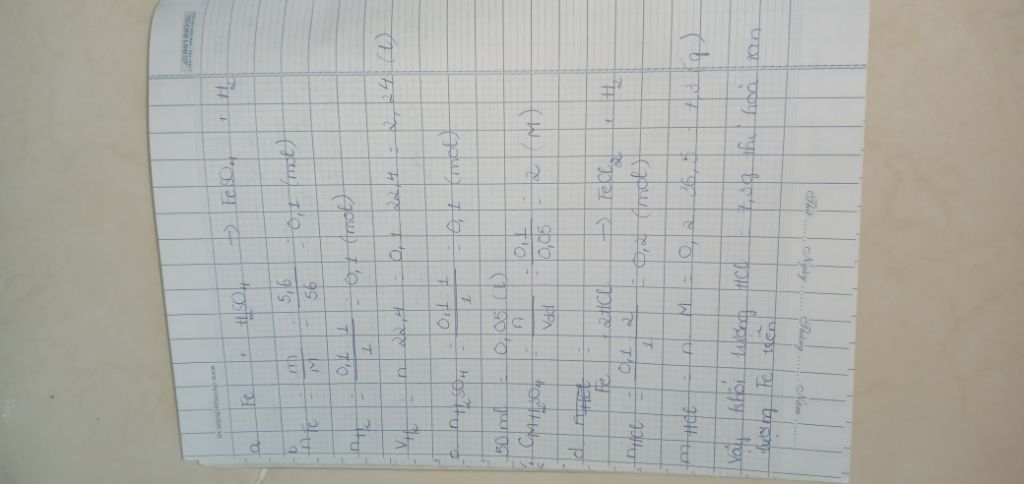 a. Fe + H2SO4 → FeSO4 + H2
b. nFe = m/M = 5,6/56 = 0,1 (mol)
nH2 = 0,1.1/1 = 0,1 (mol)
VH2 = n.22,4 = 0,1.22,4 = 2,24 (l)
c. nH2SO4 = 0,1.1/1 = 0,1 (mol)
50ml = 0,05 (l)
CMH2SO4 = n/Vdd = 0,1/0,05 = 2 (M)
d. nHCl =
Fe + 2HCl → FeCl2 + H2
nHCl = 0,1.2/1 = 0,2 (mol)
mHCl = n.M = 0,2.36,5 = 7,3 (g)
Vậy khối lượng HCl = 7,3g thì hoà tan
lượng Fe trên
Thứ ........ Ngày ........ Tháng ........ Năm ........